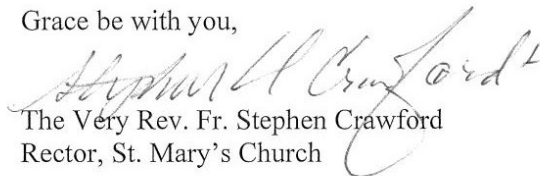 Grace be with you,
Stephen H Crawford +
The Very Rev. Fr. Stephen Crawford
Rector, St. Mary’s Church